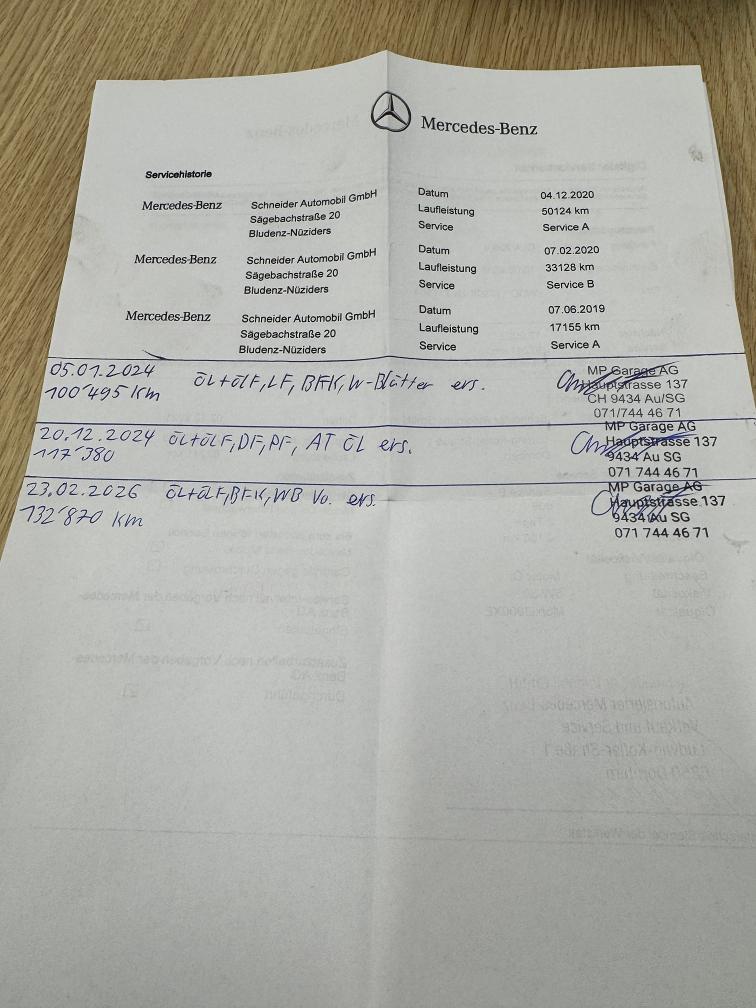 Mercedes-Benz
Servicehistorie
Mercedes-Benz Schneider Automobil GmbH Datum 04.12.2020
Sägebachstraße 20 Laufleistung 50124 km
Bludenz-Nüziders Service Service A
Mercedes-Benz Schneider Automobil GmbH Datum 07.02.2020
Sägebachstraße 20 Laufleistung 33128 km
Bludenz-Nüziders Service Service B
Mercedes-Benz Schneider Automobil GmbH Datum 07.06.2019
Sägebachstraße 20 Laufleistung 17155 km
Bludenz-Nüziders Service Service A
05.01.2024 ÖL+ÖLF, LF, BFK, W-Blätter ers. MP Garage AG
100'495 Km Hauptstrasse 137
CH 9434 Au/SG
071/744 46 71
20.12.2024 ÖL+ÖLF, DF, PF, AT ÖL ers. MP Garage AG
117'380 Hauptstrasse 137
9434 Au SG
071 744 46 71
23.02.2026 ÖL+ÖLF, BFK, WB Vo. ers. MP Garage AG
132'870 Km Hauptstrasse 137
9434 Au SG
071 744 46 71